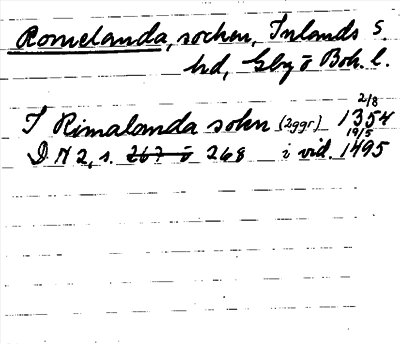 Romelanda, socken, Inlands S.
hd, Gbg o Boh. l.
2/8
I Rimalanda sokn (2ggr) 1354
19/5
D.N 2, s. 267 o 268 i vid. 1495